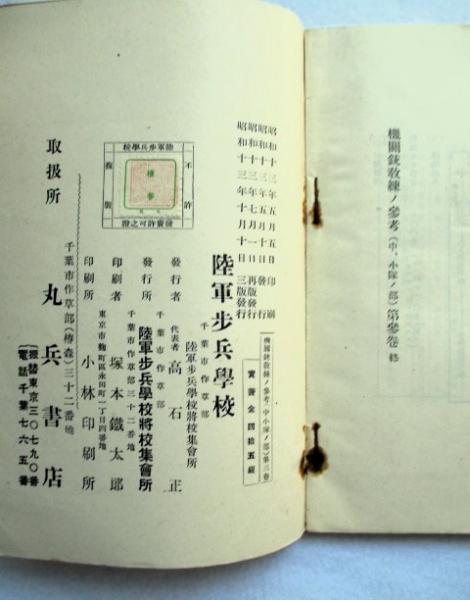 機關銃敎練ノ參考(中、小隊ノ部)第參卷 終
昭和十三年五月五日 印刷
昭和十三年五月十日 發行
昭和十三年七月一日 再版發行
昭和十三年十月十日 三版發行
機關銃敎練ノ參考(中小隊ノ部)第三卷
實費金四拾五錢
不許
複製
陸軍步兵學校
發賣許可之證
千葉市作草部
陸軍步兵學校
陸軍步兵學校將校集會所
發行者 代表者 高石正
千葉市作草部
發行所 陸軍步兵學校將校集會所
千葉市作草部三十二番地
印刷者 塚本鐵太郞
東京市麴町區永田町一丁目四番地
印刷所 小林印刷所
千葉市作草部(椿森)三十二番地
取扱所 丸兵書店
(振替東京三〇七九〇番
電話千葉七六五番)